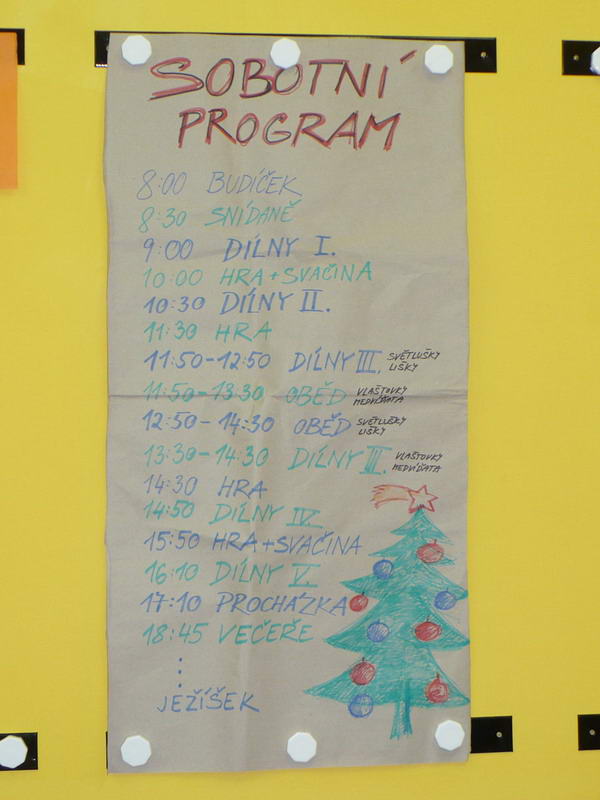 SOBOTNÍ
PROGRAM
8:00 BUDÍČEK
8:30 SNÍDANĚ
9:00 DÍLNY I.
10:00 HRA + SVAČINA
10:30 DÍLNY II.
11:30 HRA
11:50-12:50 DÍLNY III. SVĚTLUŠKY LIŠKY
11:50-13:30 OBĚD VLAŠŤOVKY MEDVÍĎATA
12:50-14:30 OBĚD SVĚTLUŠKY LIŠKY
13:30-14:30 DÍLNY III. VLAŠŤOVKY MEDVÍĎATA
14:30 HRA
14:50 DÍLNY IV.
15:50 HRA + SVAČINA
16:10 DÍLNY V.
17:10 PROCHÁZKA
18:45 VEČEŘE
JEŽÍŠEK